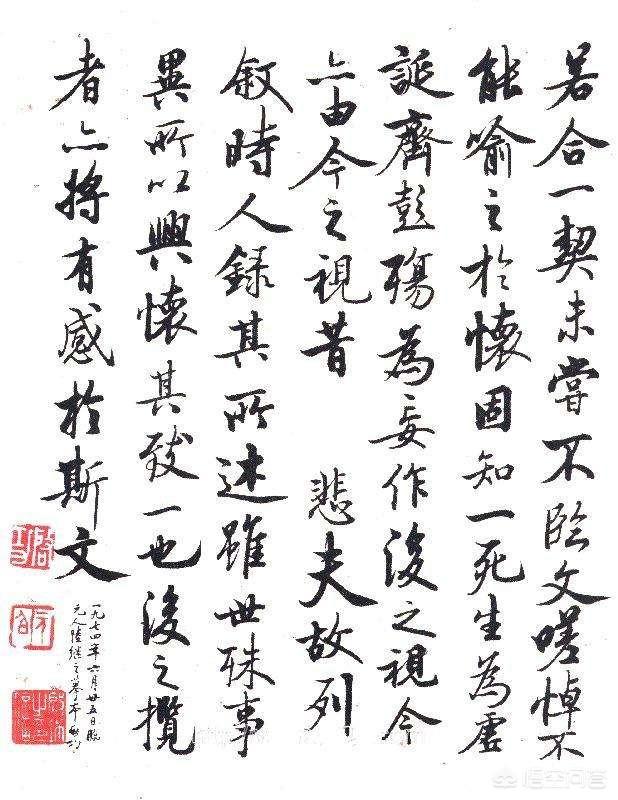 若合一契未嘗不臨文嗟悼不
能喻之於懷固知一死生為虛
誕齊彭殤為妄作後之視今
亦由今之視昔 悲夫故列
敘時人錄其所述雖世殊事
異所以興懷其致一也後之攬
者亦將有感於斯文
一九七四年六月廿五日臨
元人陸繼之摹本啟功
悟空问答